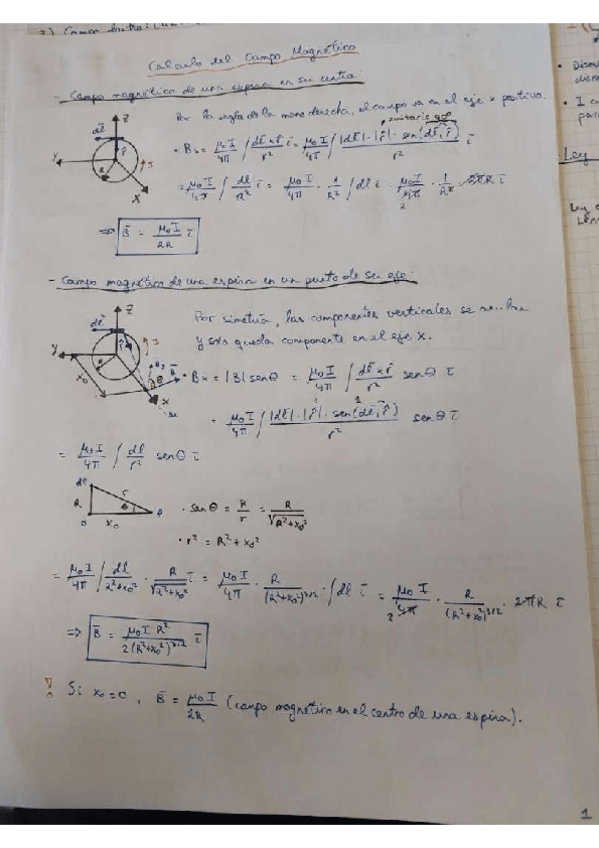 Calculo del Campo Magnético
- Campo magnético de una espira en su centro:
Por la regla de la mano derecha, el campo va en el eje x positivo.
unitario 90º
• Bx = μ0 I / 4π ∫ dl̄ x r̂ / r² ī = μ0 I / 4π ∫ |dl̄| · |r̂| · sen(dl̄, r̂) / r² ī
= μ0 I / 4π ∫ dl / R² ī = μ0 I / 4π · 1 / R² ∫ dl ī = μ0 I / 4π · 1 / R² · 2πR ī
2
⇒ B̄ = μ0 I / 2R ī
dl̄ Z r̂ Y I R X
- Campo magnético de una espira en un punto de su eje:
Por simetría, las componentes verticales se
y solo queda componente en el eje X.
dl̄ Z Y I R x0 θ By B̄ X Bx
• Bx = |B| senθ = μ0 I / 4π ∫ dl̄ x r̂ / r² senθ ī
= μ0 I / 4π ∫ |dl̄| · |r̂| · sen(dl̄, r̂) / r² senθ ī
1 1
= μ0 I / 4π ∫ dl / r² senθ ī
dl R r θ O x0 P
• senθ = R / r = R / √R²+x0²
• r² = R² + x0²
= μ0 I / 4π ∫ dl / R²+x0² · R / √R²+x0² ī = μ0 I / 4π · R / (R²+x0²)^3/2 · ∫ dl ī = μ0 I / 4π · R / (R²+x0²)^3/2 · 2πR ī
2
⇒ B̄ = μ0 I R² / 2(R²+x0²)^3/2 ī
! Si x0 = 0, B̄ = μ0 I / 2R (campo magnético en el centro de una espira).
Ley
1